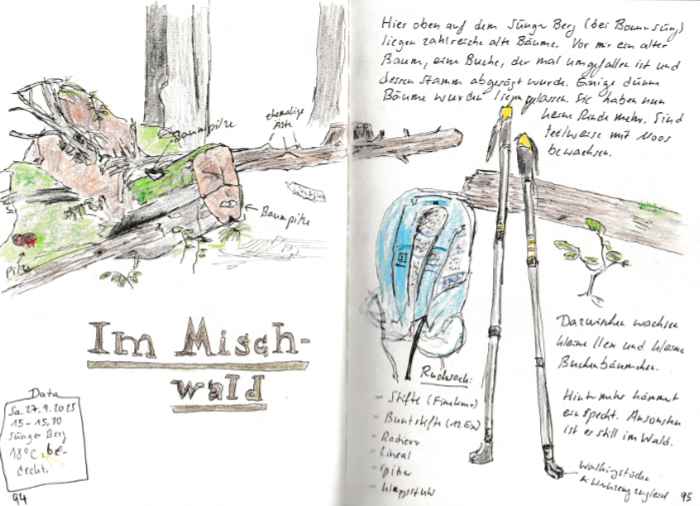 Baumpilze
ehemalige
Äste
Baumpilze
Pilz
Im Misch-
wald
Data
Sa. 27.9.2025
15 - 15.30
Sünger Berg
18°C, be-
deckt.
94
Hier oben auf dem Sünger Berg (bei
liegen zahlreiche alte Bäume. Vor mir ein alter
Baum, eine Buche, der mal umgefallen ist und
dessen Stamm abgesägt wurde. Einige dünne
Bäume wurden liegengelassen. Sie haben nun
keine Rinde mehr. Sind
teilweise mit Moos
bewachsen.
Dazwischen wachsen
kleine Ilex und kleine
Buchenbäumchen.
Hinter mir hämmert
ein Specht. Ansonsten
ist es still im Wald.
Rucksack:
- Stifte (Fineliner)
- Buntstifte (12
- Radierer
- Lineal
- Spitzer
- Klappstuhl
Walkingstöcke
95